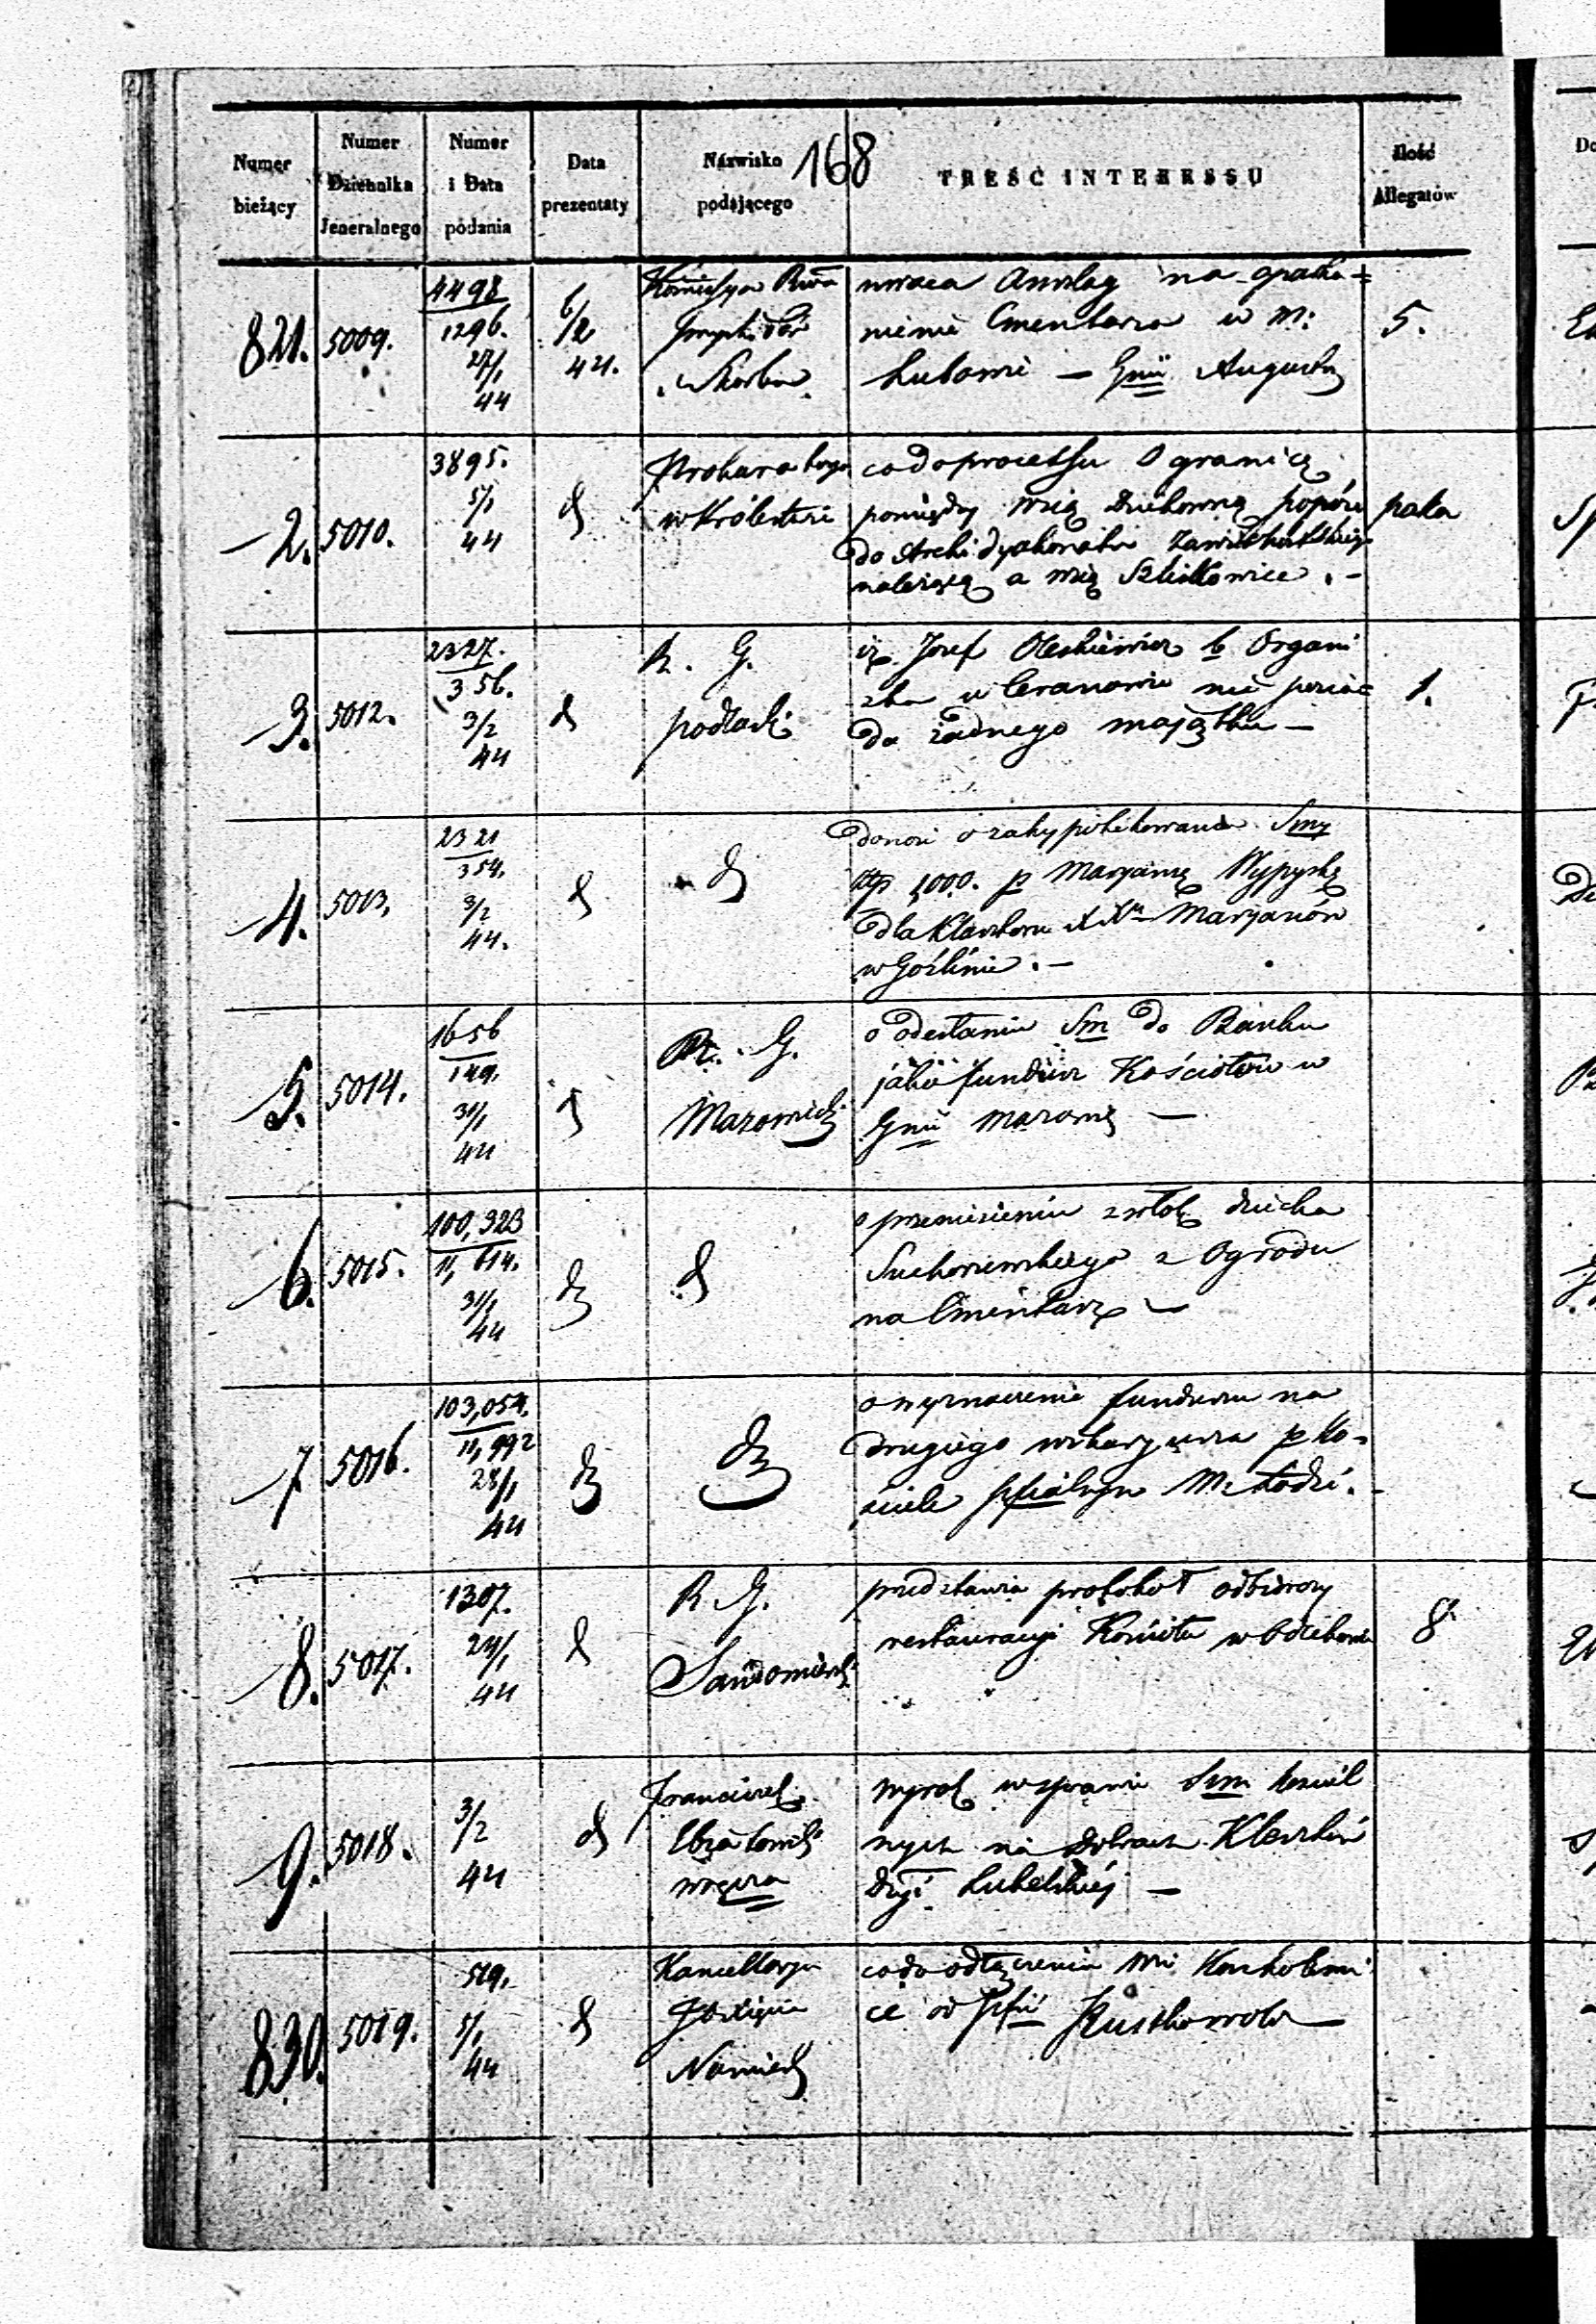 168
Numer bieżący
Numer Dziennika Jeneralnego
Numer i Data podania
Data prezentaty
Nazwisko podającego
TREŚĆ INTERESSU
Ilość Allegatów
821. 5009. 4498 / 1296. 27/1 44 6/2 44. Kommissya
Skarbu
zwraca Anszlag na
Cmentarza w M:
Lubowie — Gnii Augusts
5.
2. 5010. 3895. 5/1 44 d
Prokurator
w Królestwie
co do processu o granicę
pomiędzy wsią Duchowną popów
do Archidyakonatu Zawichostskiego
należącą a wsią
3. 5012. 2327. / 356. 3/2 44 d
R. G.
podlaski
iż Józef Oleskiewicz b Organi
sta w Ceranowie nie posia=
da żadnego majątku —
1.
4. 5013. 2321 / 354. 3/2 44. d d
donosi o zahypotekowaniu Smy
złp 1000. p Maryannę Wypyską
dla Klasztoru XXy Maryanów
w Goźlinie. —
5. 5014. 1656 / 149. 31/1 44 d
R. G.
Mazowiecki
o odesłaniu Sm do Banku
jako fundusz Kościołów w
Gnii Mazow —
6. 5015. 100,323 / 11,614. 31/1 44 d d
o przeniesieniu zwłok
z Ogrodu
na Cmentarz —
7 5016. 103,054. / 11,992 28/1 44 d d
o wyznaczenie funduszu na
drugiego wikaryusza p Ko=
ściele pfialnym M: Łodzi.
8. 5017. 1307. 24/1 44 d
R. G.
Sandomierski
przedstawia protokół odbiorczy
restauracyi Kościoła w
8.
9. 5018. 3/2 44 d
Franciszek
wyrok w sprawie Sum kościel
nych na dobrach
dyi Lubelskiéj —
830. 5019. 519. 5/1 44 d
Kancellarya
JO Xięcia
Namiest
co do odłączenia wsi
ce od pfii